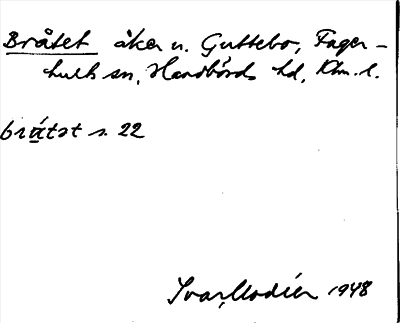 Bråtet åker u. Guttebo, Fager-
hult sn, Handbörds hd, Klm. l.
brɑ́tət s. 22
Ivar Modéer 1948